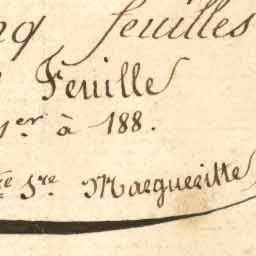 feuilles
Feuille
1er à 188.
re Sre Margueritte